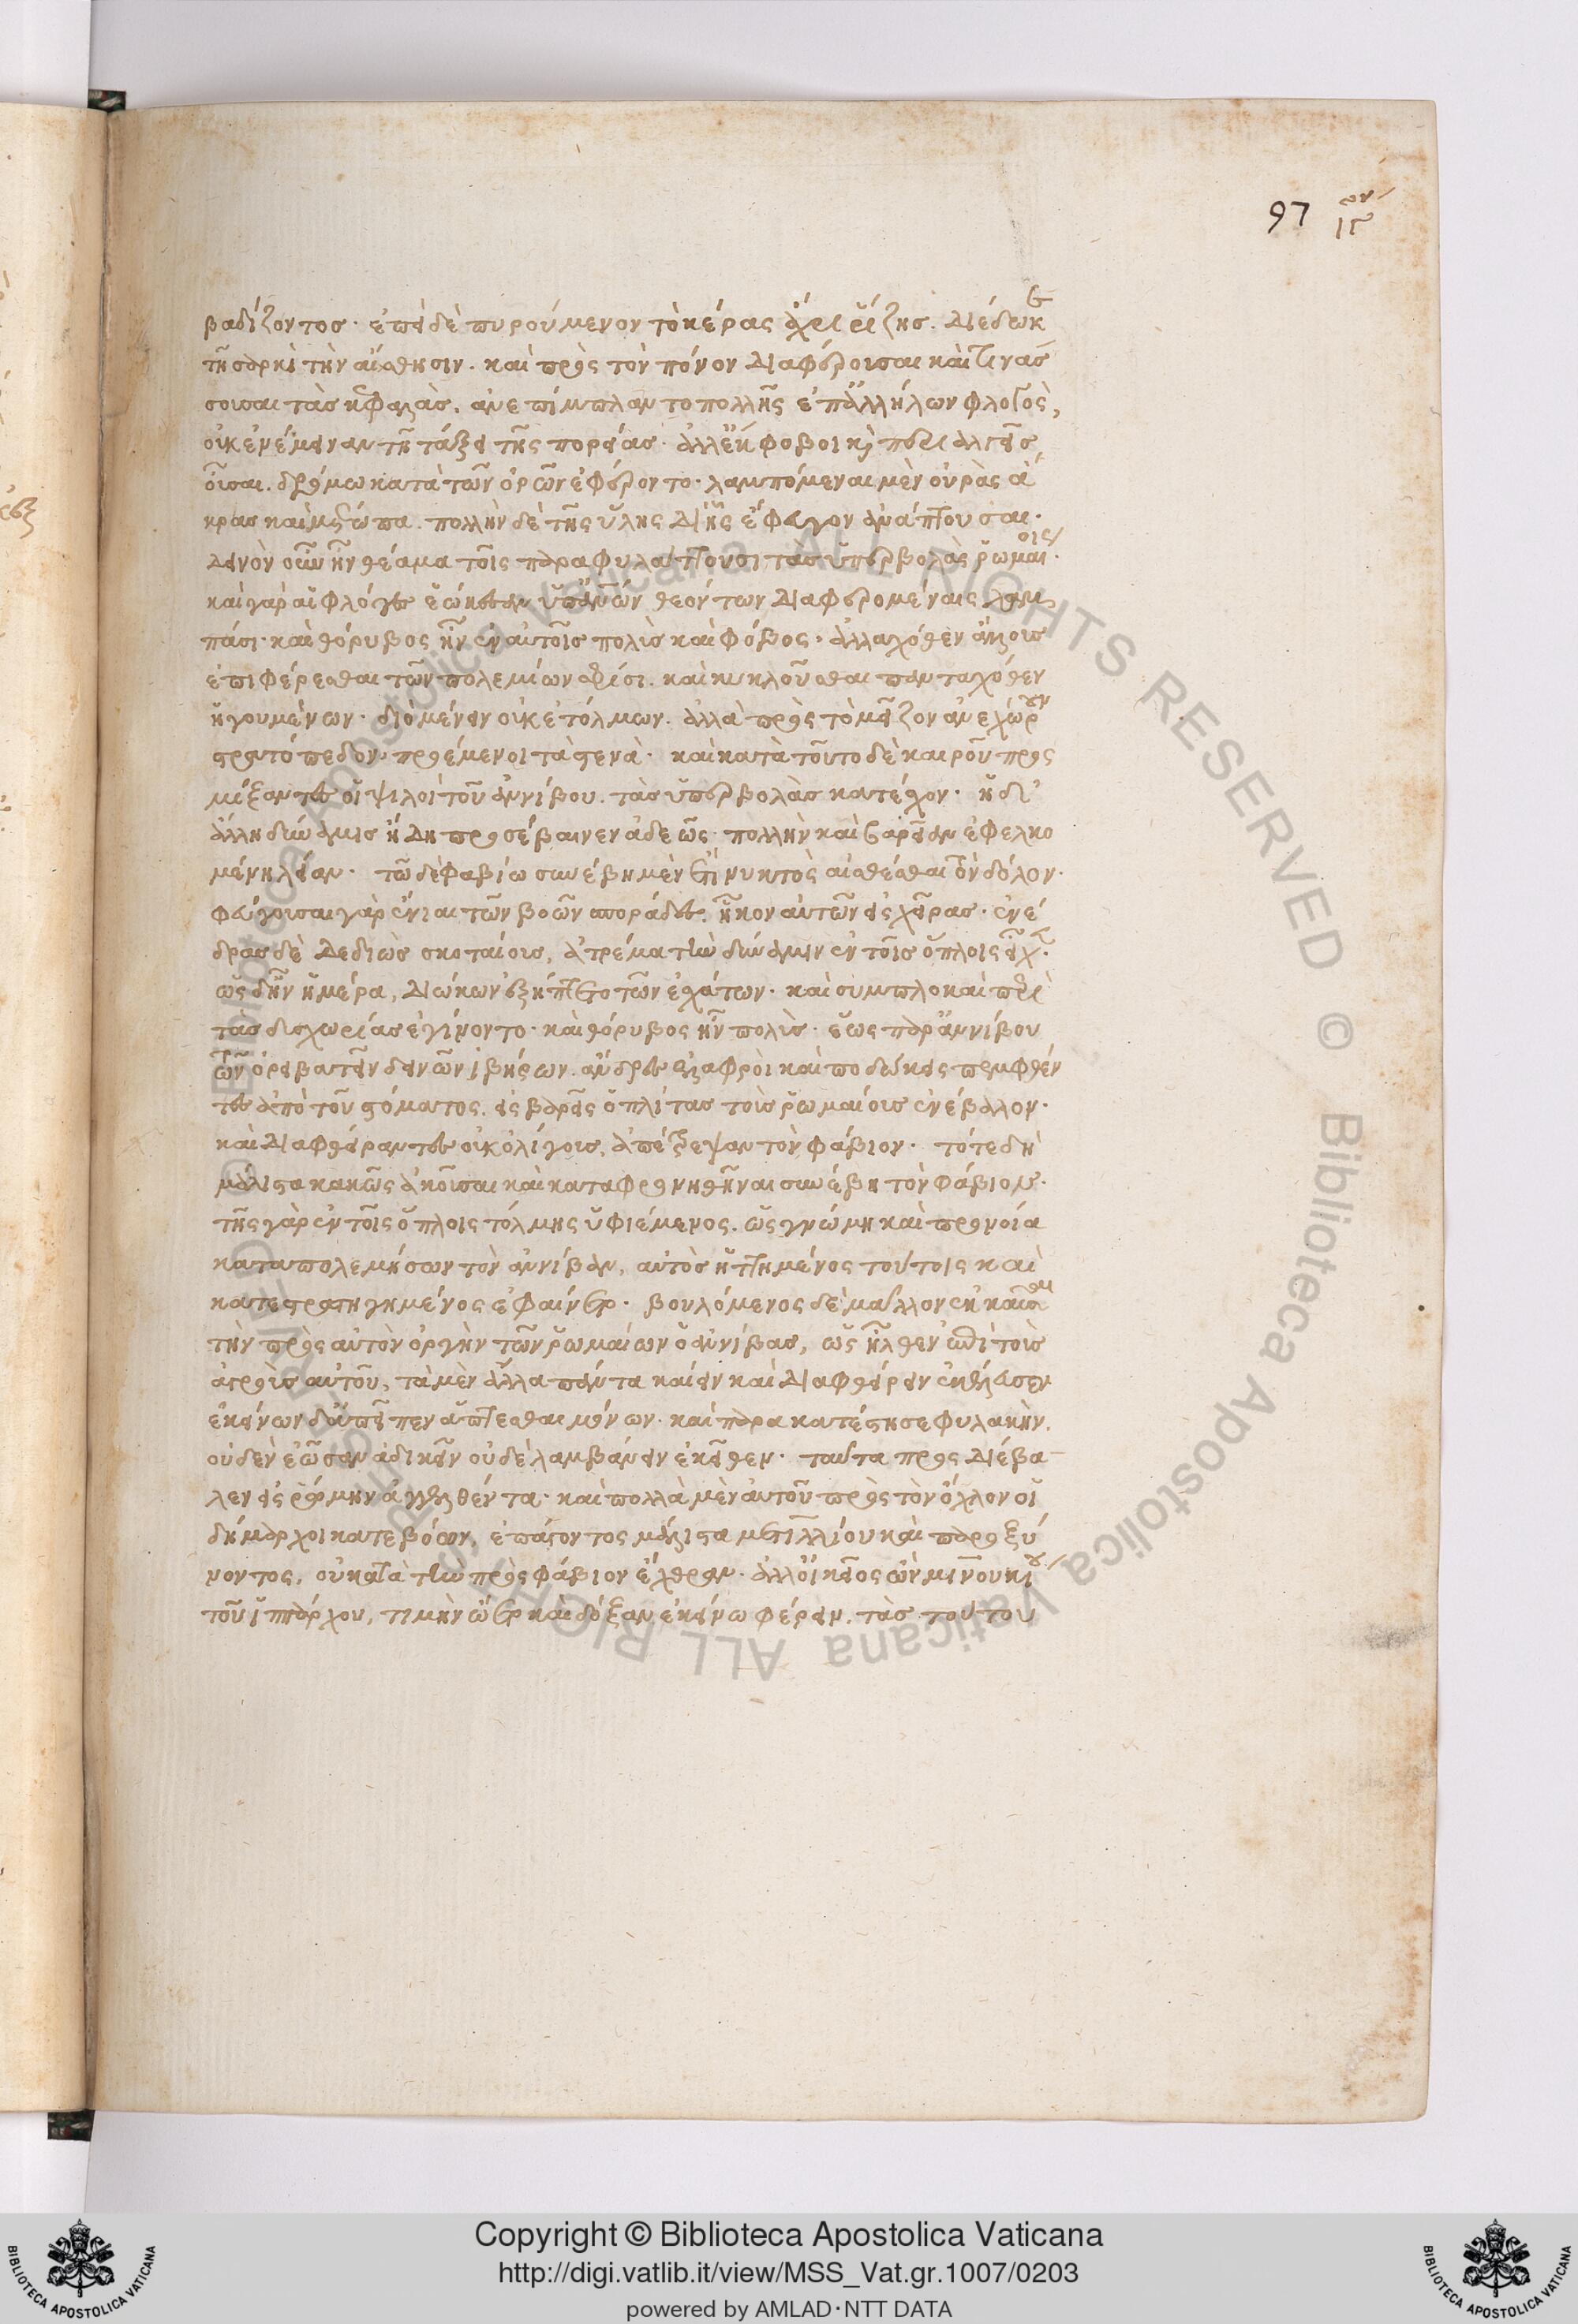 97
βαδίζοντος· ἐπεὶ δὲ πυρούμενον τὸ κέρας ἄχρι ῥίζης. διέδωκε
τῇ σαρκὶ τὴν αἴσθησιν. καὶ πρὸς τὸν πόνον διαφέρουσαι καὶ τινάσ
σουσαι τὰς κεφαλὰς. ἀνεπίμπλαντο πολλῆς ἐπ' ἀλλήλων φλογὸς,
οὐκ ἐνέμειναν τῇ τάξει τῆς πορείας· ἀλλ' ἔκφοβοι καὶ περιαλγεῖς
οὖσαι. δρόμω κατὰ τῶν ὀρῶν ἐφέροντο· λαμπόμεναι μὲν οὐρὰς ἄ
κρας καὶ μέτωπα. πολλὴν δὲ τῆς ὕλης δι' ἧς ἔφευγον ἀνάπτουσαι.
δεινὸν οὖν ἦν θέαμα τοῖς παραφυλάττουσι τὰς ὑπερβολὰς ῥωμαίοις.
καὶ γὰρ αἱ φλόγες ἐώκεσαν ὑπ' ἀνων θεόντων διαφερομέναις λαμ
πάσι· καὶ θόρυβος ἦν ἐν αὐτοῖς πολὺς καὶ φόβος· ἀλλαχόθεν ἄλλους
ἐπιφέρεσθαι τῶν πολεμίων σφίσι. καὶ κυκλοῦσθαι πανταχόθεν
ἡγουμένων· διὸ μένειν οὐκ ἐτόλμων. ἀλλὰ πρὸς τὸ μεῖζον ἀνεχώρουν
στρατόπεδον· προέμενοι τὰ στενὰ· καὶ κατὰ τοῦτο δὲ καιροῦ προς
μίξαντες οἱ ψιλοὶ τοῦ ἀννίβου. τὰς ὑπερβολὰς κατέσχον· ἡ δ'
ἄλλη δύναμις ἤδη προσέβαινεν ἀδεῶς· πολλὴν καὶ βαρεῖαν ἐφελκο
μένη λείαν· τῶ δὲ φαβίω συνέβη μὲν ἔτι νυκτὸς αἰσθέσθαι τὸν δόλον·
φεύγουσαι γὰρ ἔνιαι τῶν βοῶν σποράδες. ἧκον αὐτῶν εἰς χεῖρας· ἐνέ
δρας δὲ δεδιὼς σκοταίους, ἀτρέμα τὴν δύναμιν ἐν τοῖς ὅπλοις εἶχε.
ὡς δ' ἦν ἡμέρα, διώκων ἐξήπτετο τῶν ἐσχάτων· καὶ συμπλοκαὶ περὶ
τὰς δυσχωρίας ἐγίνοντο· καὶ θόρυβος ἦν πολὺς· ἕως παρ' ἀννίβου
τῶν ὀρειβατεῖν δεινῶν ἰβήρων. ἄνδρες ἐλαφροὶ καὶ ποδώκεις πεμφθέν
τες ἀπὸ τοῦ στόματος. εἰς βαρεῖς ὁπλίτας τοῖς ῥωμαίοις ἐνέβαλον·
καὶ διαφθείραντες οὐκ ὀλίγους, ἀπέτρεψαν τὸν φάβιον· τότε δὴ
μάλιστα κακῶς ἀκοῦσαι καὶ καταφρονηθῆναι συνέβη τὸν φάβιον·
τῆς γὰρ ἐν τοῖς ὅπλοις τόλμης ὑφιέμενος. ὡς γνώμη καὶ προνοία
καταπολεμήσων τὸν ἀννίβαν, αὐτὸς ἡττημένος τούτοις καὶ
κατεστρατηγημένος ἐφαίνετο· βουλόμενος δὲ μᾶλλον ἐκκαῦσαι
τὴν πρὸς αὐτὸν ὀργὴν τῶν ῥωμαίων ὁ ἀννίβας, ὡς ἦλθεν ἐπὶ τοὺς
ἀγροὺς αὐτοῦ, τὰ μὲν ἄλλα πάντα καίειν καὶ διαφθείρειν ἐκέλευσεν
ἐκείνων δ' ἀπεῖπεν ἅπτεσθαι μόνων· καὶ παρακατέστησε φυλακὴν.
οὐδὲν ἐῶσαν ἀδικεῖν οὐδὲ λαμβάνειν ἐκεῖθεν· ταῦτα προς διέβα
λεν εἰς ῥώμην ἀγγελθέντα· καὶ πολλὰ μὲν αὐτοῦ πρὸς τὸν ὄχλον οἱ
δήμαρχοι κατεβόων, ἐπάγοντος μάλιστα μετιλλίου καὶ παροξύ
νοντος, οὐ κατὰ τὴν πρὸς φάβιον ἔχθραν· ἀλλ' οἰκεῖος ὢν μινουκίου
τοῦ ἱππάρχου, τιμὴν ὤετο καὶ δόξαν ἐκείνω φέρειν. τὰς τούτου
Copyright © Biblioteca Apostolica Vaticana
http://digi.vatlib.it/view/MSS_Vat.gr.1007/0203
powered by AMLAD·NTT DATA
BIBLIOTECA APOSTOLICA VATICANA
BIBLIOTECA APOSTOLICA VATICANA
© Biblioteca Apostolica Vaticana ALL RIGHTS RESERVED © Biblioteca Apostolica Vaticana ALL RIGHTS RESERVED